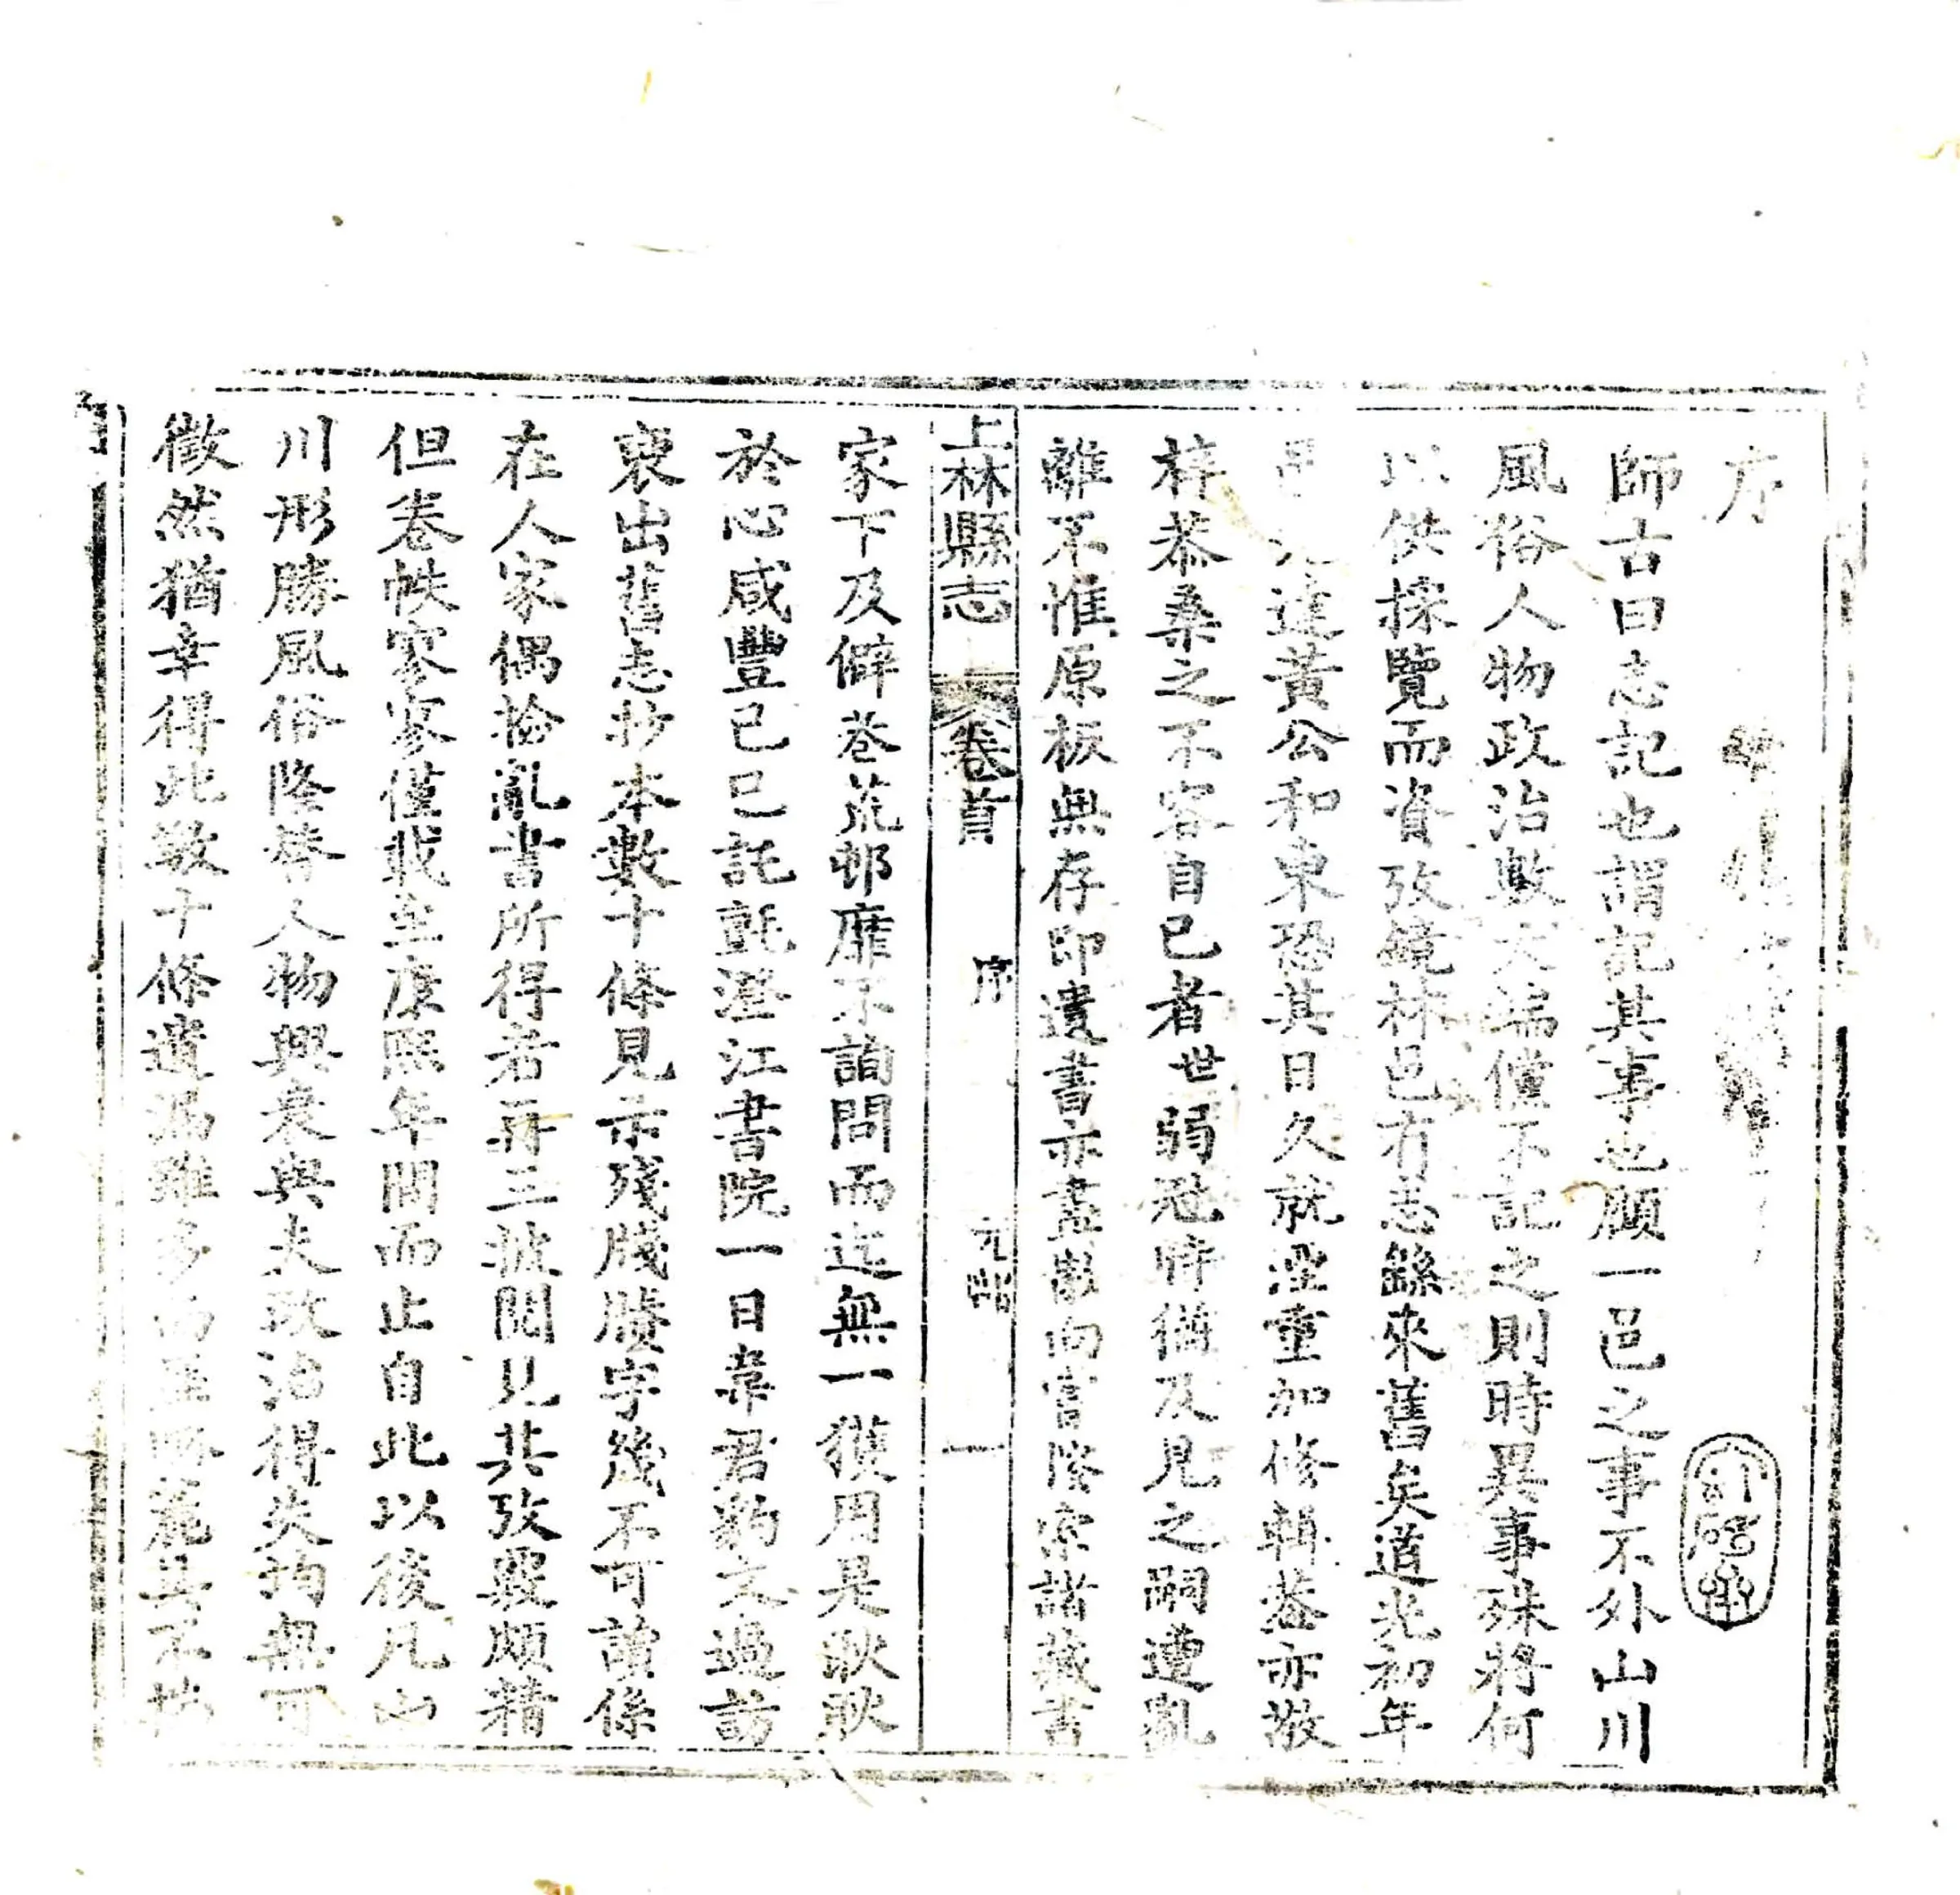 序
師古曰志記也謂記其事也顧一邑之事不外山川
風俗人物政治數大端僅不記之則時異事殊將何
以供採覽而資攷鏡林邑有志繇來舊矣道光初年
邑 達黃公和東恐其日久就湮重加修輯葢亦敬
梓恭桑之不容自已者世弱冠時猶及見之嗣遭亂
離不惟原板無存印遺書亦盡散向富隆宗諸藏書
上林縣志 卷首 序 一
家下及僻巷荒邨靡不詢問而迄無一獲用是耿耿
於心咸豐己巳託氈澄江書院一日韋君豹文過訪
衷出舊志抄本數十條見示殘牋賸字幾不可讀係
在人家偶撿亂書所得者再三披閱見其攷覈頗精
但卷帙寥寥僅載至康熙年間而止自此以後凡山
川形勝風俗隆替人物興衰與夫政治得失均無可
徵然猶幸得此數十條遺漏雖多而